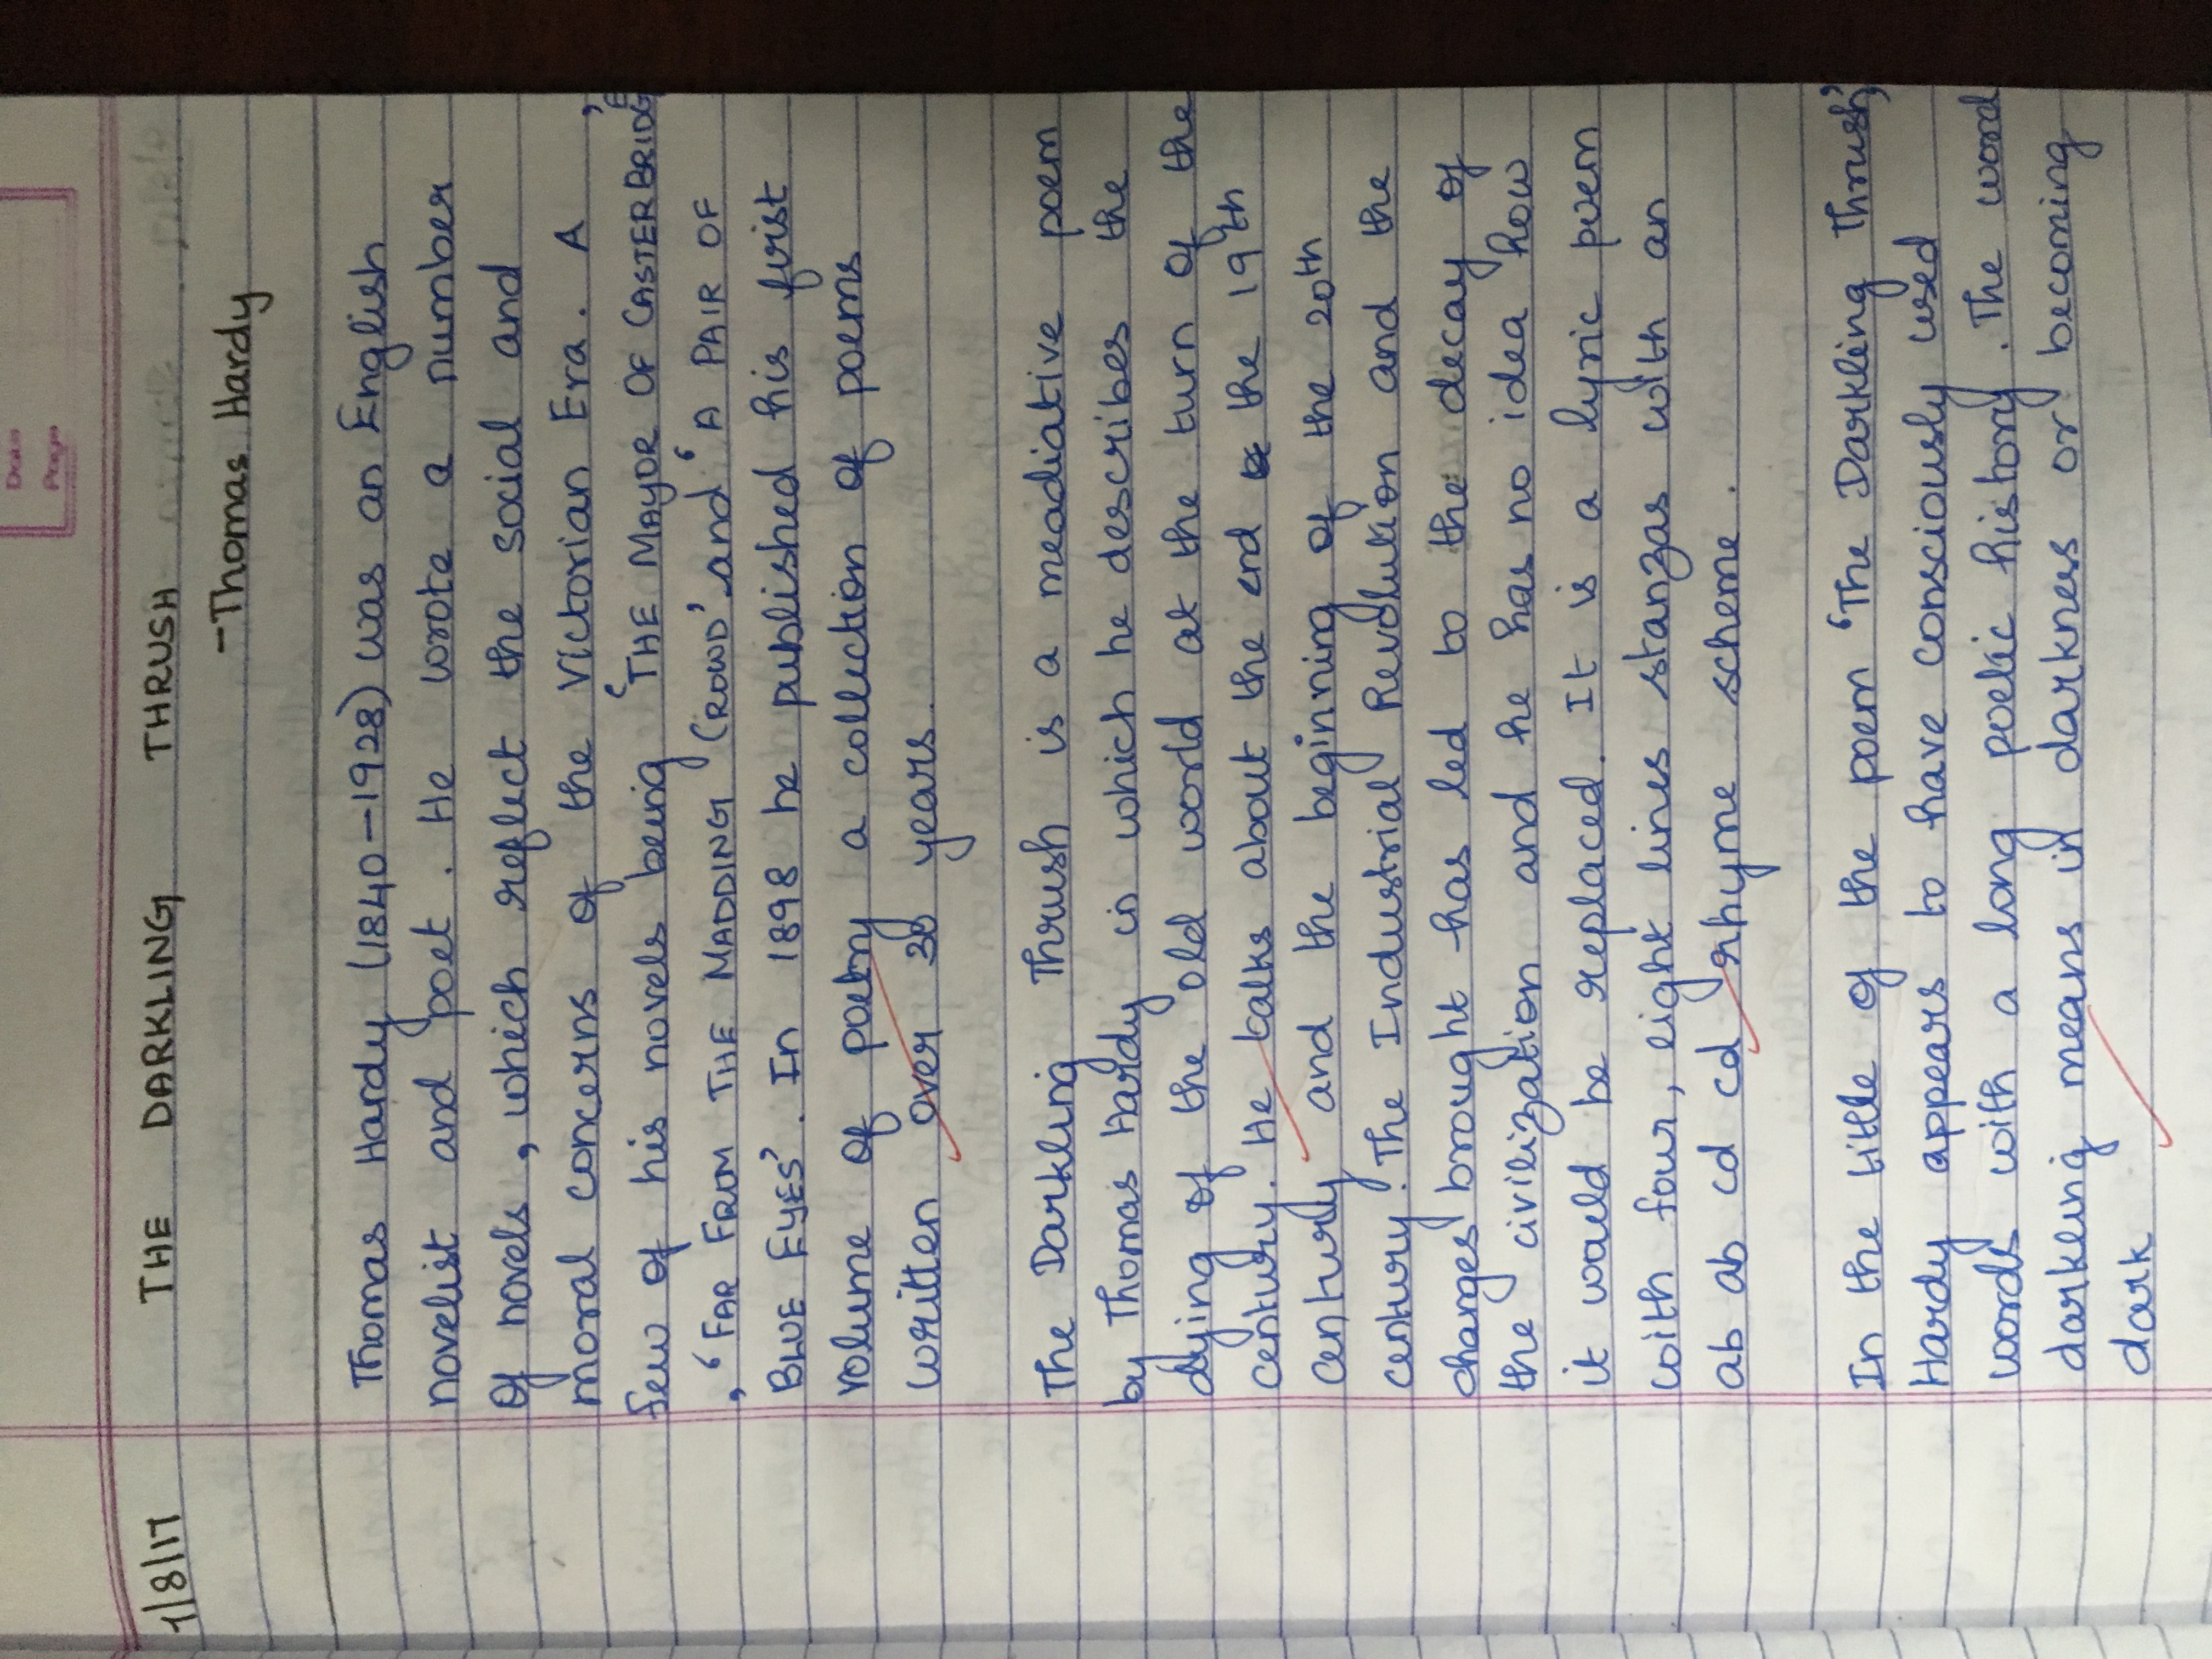 Date
Page
1/8/17 THE DARKLING THRUSH
-Thomas Hardy
Thomas Hardy (1840-1928) was an English
novelist and poet. He wrote a number
of novels, which reflect the social and
moral concerns of the Victorian Era. A
few of his novels being 'THE MAYOR OF CASTERBRIDGE'
, 'FAR FROM THE MADDING CROWD' and 'A PAIR OF
BLUE EYES'. In 1898 he published his first
volume of poetry a collection of poems
written over 30 years.
The Darkling Thrush is a meadiative poem
by Thomas Hardy in which he describes the
dying of the old world at the turn of the
century. He talks about the end the 19th
century and the beginning of the 20th
century. The Industrial Revolution and the
changes brought has led to the decay of
the civilization and he has no idea how
it would be replaced. It is a lyric poem
with four, eight lines stanzas with an
ab ab cd cd rhyme scheme.
In the tittle of the poem 'The Darkling Thrush',
Hardy appears to have consciously used
words with a long poetic history. The word
darkling means in darkness or becoming
dark